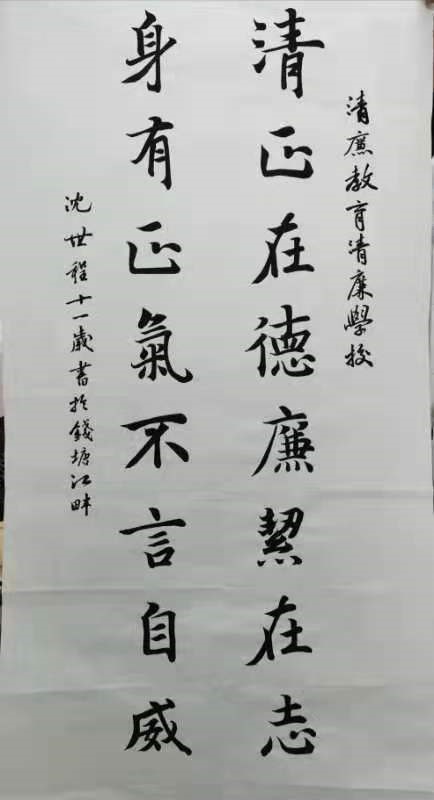 清廉教育清廉學校
清正在德廉潔在志
身有正氣不言自威
沈世程十一歲書於錢塘江畔